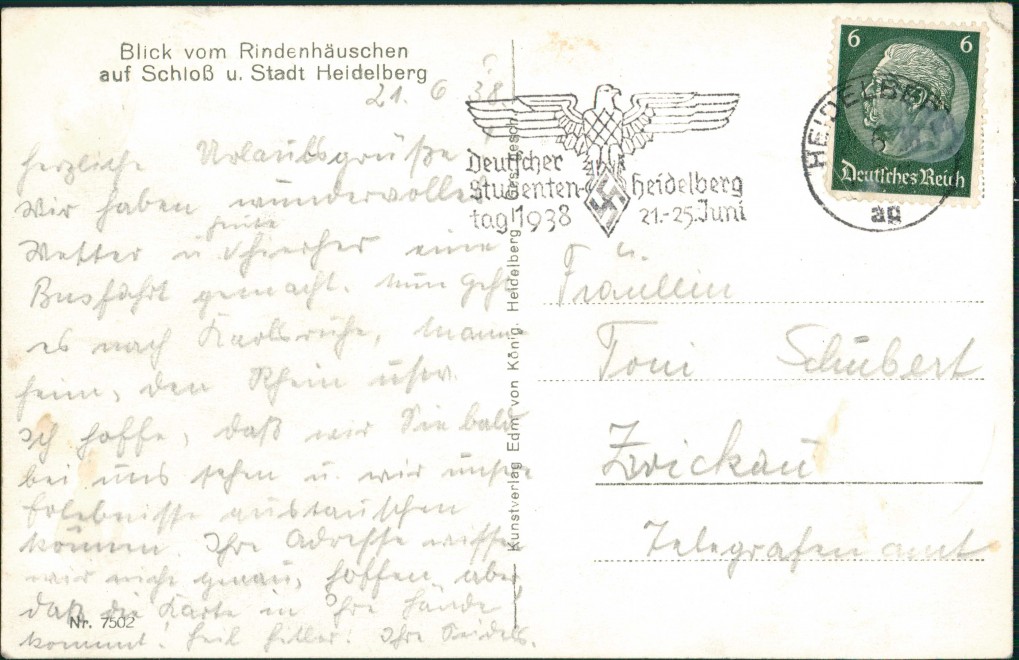 Blick vom Rindenhäuschen
auf Schloß u. Stadt Heidelberg
21. 6. 38.
herzliche Urlaubsgrüße
Wir haben wundervolles
Wetter u. heute hierher eine
Busfahrt gemacht. Nun geht
es nach Karlsruhe, Mann-
heim, den Rhein usw.
Ich hoffe, daß wir Sie bald
bei uns sehen u. wir unsere
Erlebnisse austauschen
können. Ihre Adresse wissen
wir nicht genau, hoffen aber
daß die Karte in Ihre Hände
kommt! Heil Hitler! Ihre Seidels.
Nr. 7502
Kunstverlag Edm. von König, Heidelberg Ges. Gesch.
Deutscher
Studenten-
tag 1938
Heidelberg
21.-25. Juni
6 6
Deutsches Reich
HEIDELBERG
ag
Fräulein
Toni Schubert
Zwickau
Telegrafenamt